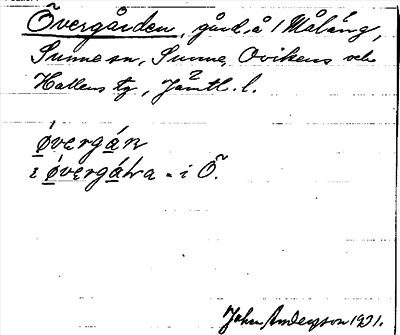 Övergården, gård, å 1 Målång,
Sunne sn, Sunne, Ovikens och
Hallens tg, Jämtl. l.
øvergán
i øvergátra = i Ö.
John Anderyson 1921.